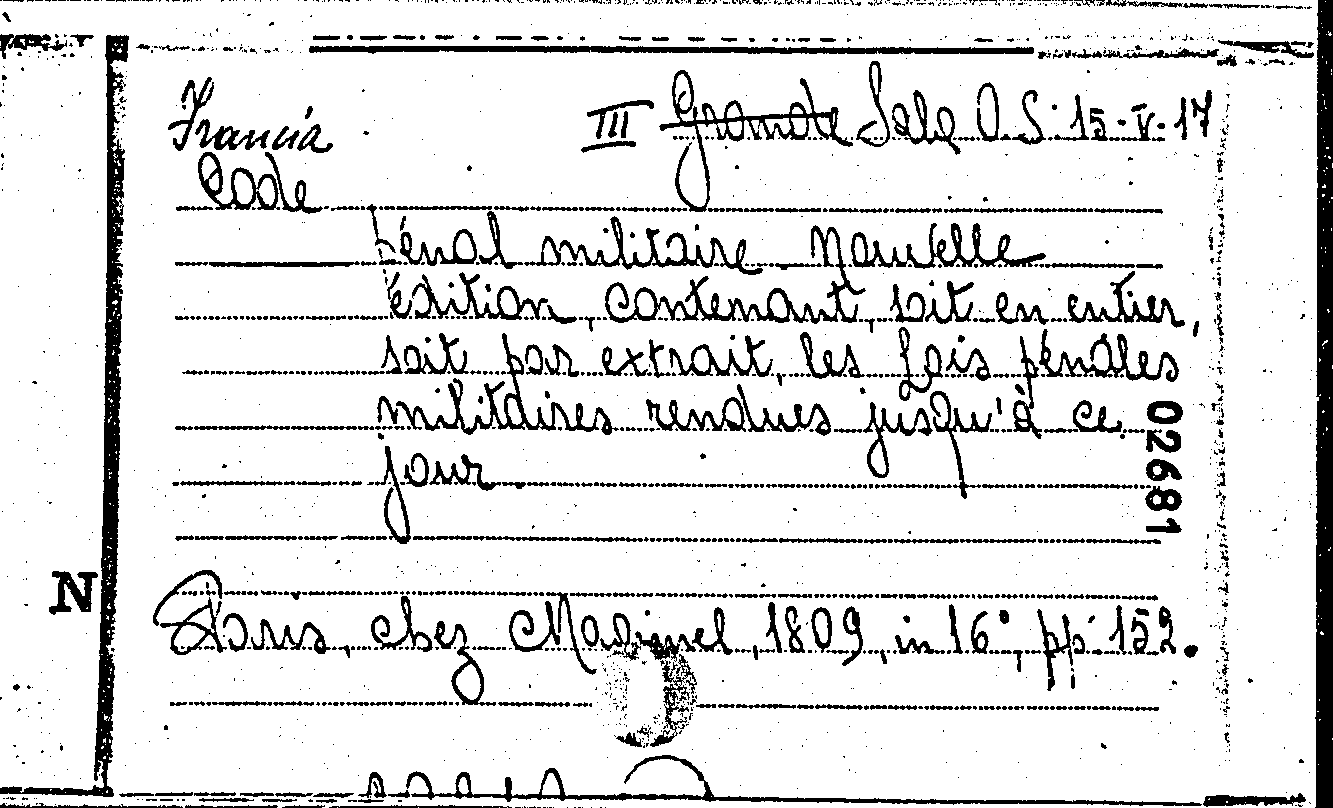 Francia III Granate Sala O. S. 15-V-17
Code
pénal militaire. Nouvelle
édition, contenant, soit en entier,
soit par extrait, les Lois pénales
militaires rendues jusqu'à ce
jour.
02681
N
Paris, chez Magimel, 1809, in 16°, pp. 152.